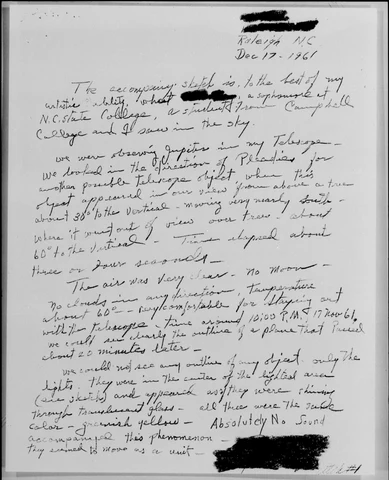 Raleigh N.C
Dec 17 - 1961
The accompaning sketch is, to the best of my
artistic ability, what a sophomore at
N.C. State College, a student from Campbell
College and I saw in the sky.
We were observing Jupiter in my Telescope -
We looked in the direction of Pleadies for
another possible telescope object when this
object appeared in our view from above a tree
about 30° to the Vertical - moving very nearly South -
where it went out of view over trees - about
60° to the Vertical - Time elapsed about
three or four seconds -
The air was very clear - No Moon -
No clouds in any direction, Temperature
about 60° - very comfortable for staying out
with the telescope - time around 10:00 P.M. 17 Nov 61.
We could see clearly the outline of a plane that passed
about 20 minutes later -
We could not see any outline of any object only the
lights. they were in the center of the lighted area
(see sketch) and appeared as if they were shining
through translucent glass - all three were the same
color - greenish yellow - Absolutely No Sound
accompanied this phenomenon -
they seemed to move as a unit -